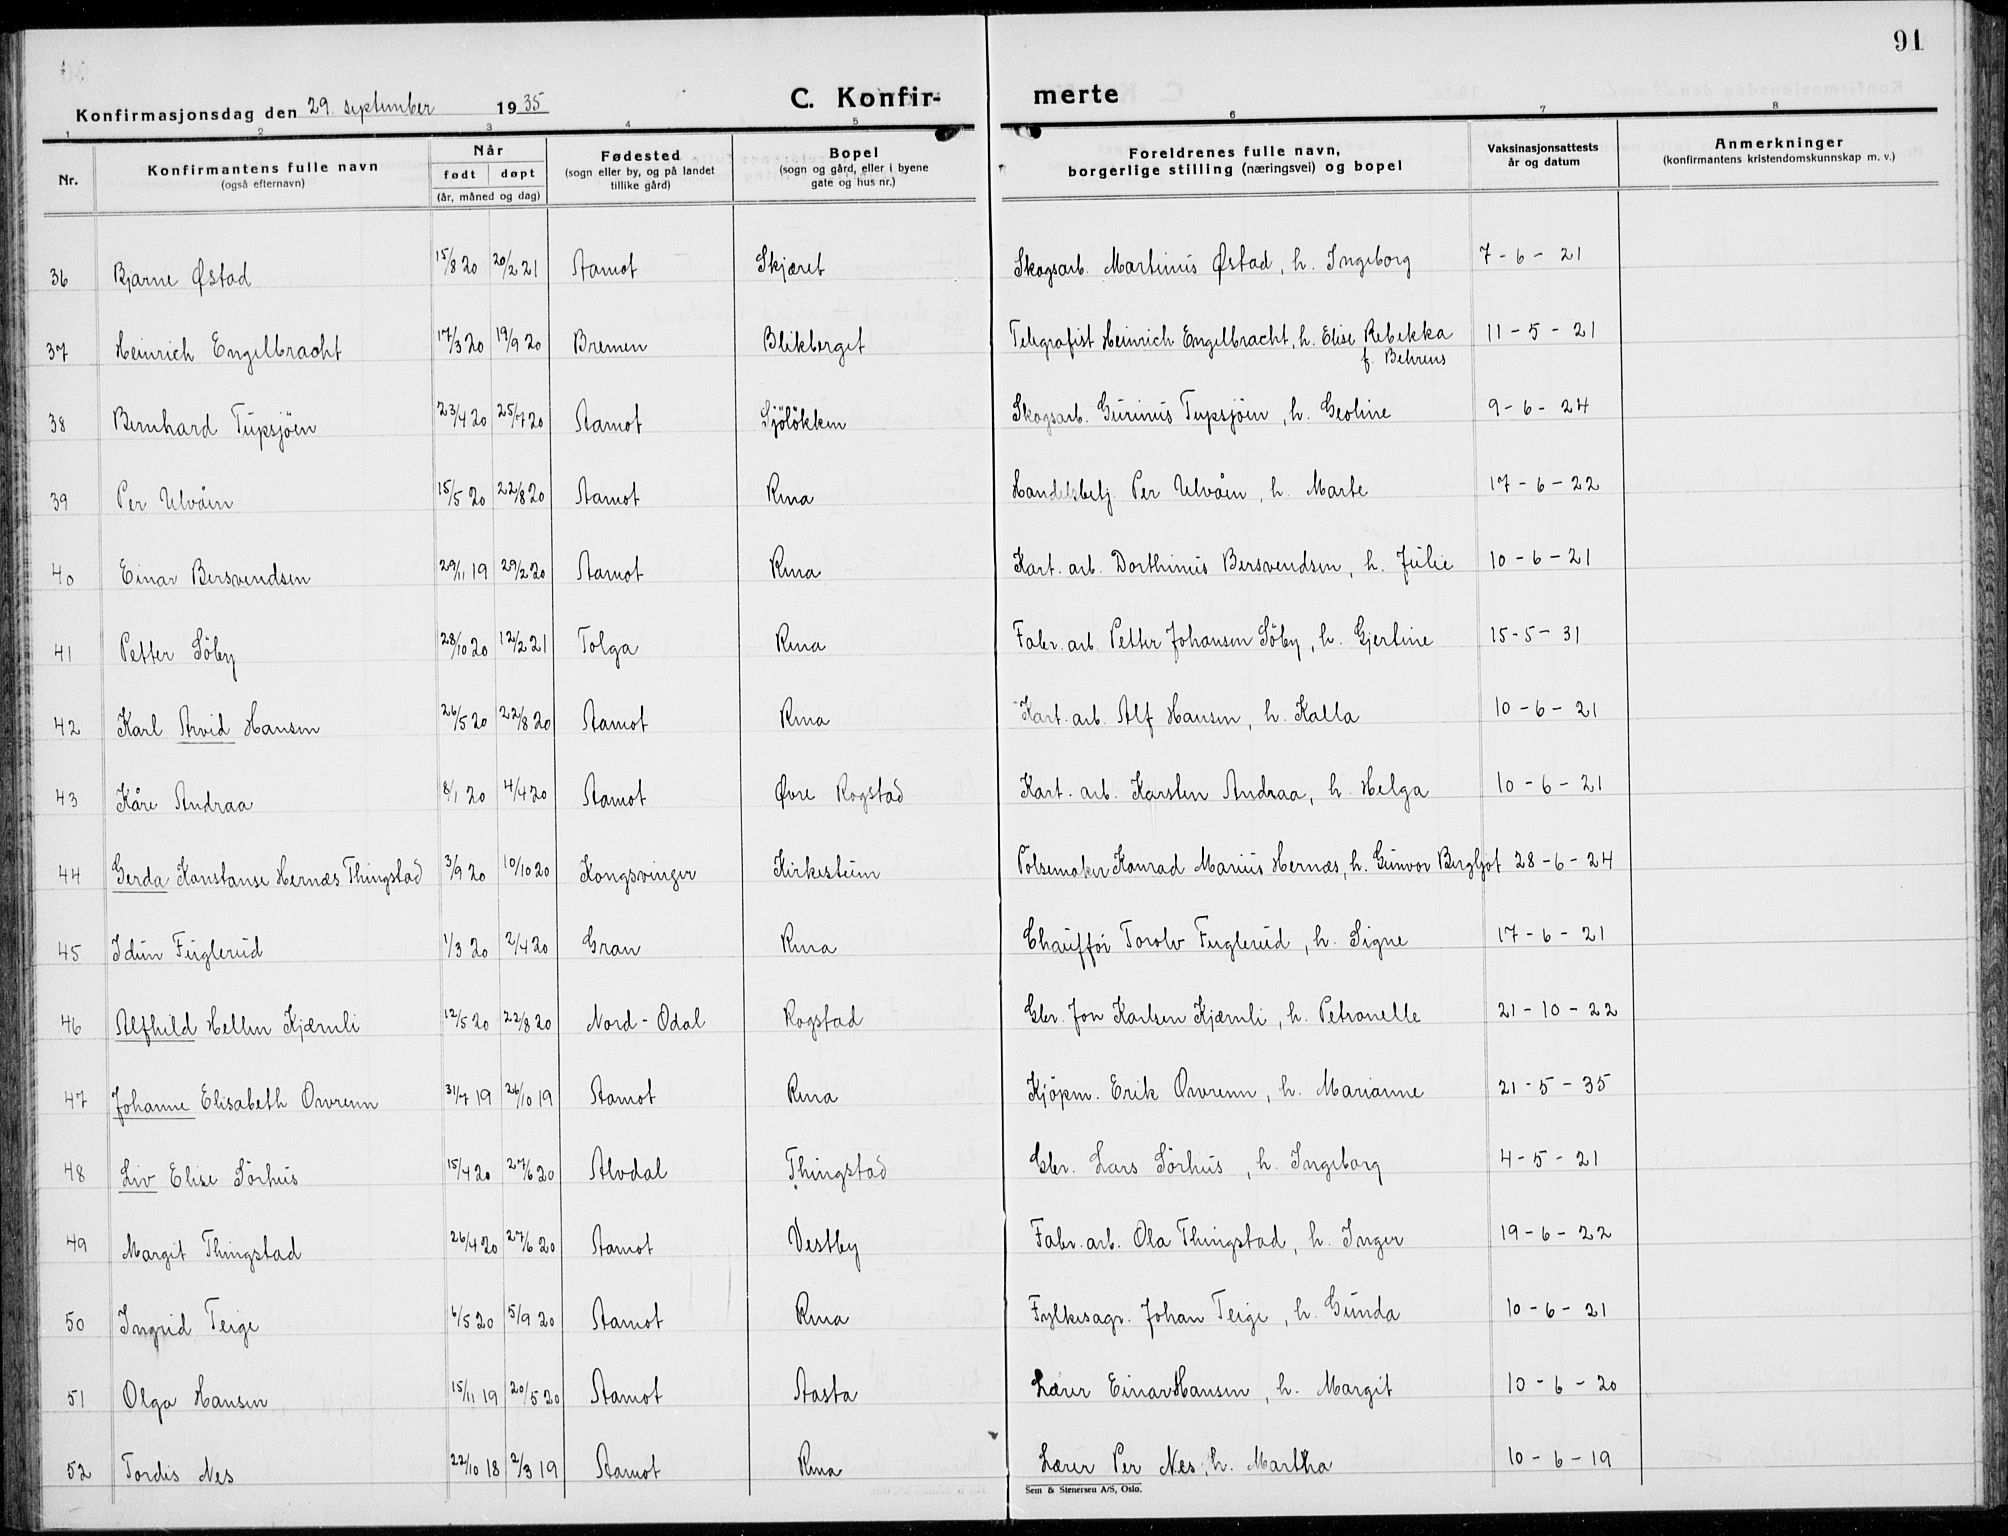 91
Konfirmasjonsdag den 29. september 1935
C. Konfir-
merte
1 2 3 4 5 6 7 8
Nr.
Konfirmantens fulle navn
(også efternavn)
Når
født døpt
(år, måned og dag)
Fødested
(sogn eller by, og på landet
tillike gård)
Bopel
(sogn og gård, eller i byene
gate og hus nr.)
Foreldrenes fulle navn,
borgerlige stilling (næringsvei) og bopel
Vaksinasjonsattests
år og datum
Anmerkninger
(konfirmantens kristendomskunnskap m. v.)
36 Bjarne Østad 15/8 20 20/2 21 Aamot Skjæret Skogsarb. Martinus Østad, h. Ingeborg 7-6-21
37 Heinrich Engelbracht 17/3 20 19/9 20 Bremen Blikberget Telegrafist Heinrich Engelbracht, h. Elise Rebekka 11-5-21
f. Behrens
38 Bernhard Tupsjöen 23/4 20 25/7 20 Aamot Sjölökken Skogsarb. Gurinus Tupsjöen, h. Geoline 9-6-24
39 Per Ulvåen 15/5 20 22/8 20 Aamot Rena Handelsbetj. Per Ulvåen, h. Marte 17-6-22
40 Einar Bersvendsen 29/11 19 29/2 20 Aamot Rena Kart. arb. Dorthinus Bersvendsen, h. Julie 10-6-21
41 Petter Söby 28/10 20 12/2 21 Tolga Rena Fabr. arb. Petter Johansen Söby, h. Gjertine 15-5-31
42 Karl Arvid Hansen 26/5 20 22/8 20 Aamot Rena Kart. arb. Alf Hansen, h. Kalla 10-6-21
43 Kåre Andraa 8/1 20 4/4 20 Aamot Øvre Rogstad Kart. arb. Karsten Andraa, h. Helga 10-6-21
44 Gerda Konstanse Hernæs Thingstad 3/9 20 10/10 20 Kongsvinger Kirkesteien Pölsemaker Konrad Marius Hernæs, h. Gunvor Bergljot 28-6-24
45 Idun Fuglerud 1/3 20 2/4 20 Gran Rena Chaufför Torolv Fuglerud, h. Signe 17-6-21
46 Alfhild Hellen Kjærnli 12/5 20 22/8 20 Nord-Odal Rogstad Gbr. Jon Karlsen Kjærnli, h. Petronelle 21-10-22
47 Johanne Elisabeth Owrenn 31/7 19 26/10 19 Aamot Rena Kjöpm. Erik Owrenn, h. Marianne 21-5-35
48 Liv Elise Sörhus 15/4 20 27/6 20 Alvdal Thingstad Gbr. Lars Sörhus, h. Ingeborg 4-5-21
49 Margit Thingstad 26/4 20 27/6 20 Aamot Vestby Fabr. arb. Ola Thingstad, h. Inger 19-6-22
50 Ingrid Teige 6/5 20 5/9 20 Aamot Rena Fylkesagr. Johan Teige, h. Gunda 10-6-21
51 Olga Hansen 15/11 19 20/5 20 Aamot Aasta Lærer Einar Hansen, h. Margit 10-6-20
52 Tordis Nes 22/10 18 2/3 19 Aamot Rena Lærer Per Nes, h. Martha 10-6-19
Sem & Stenersen A/S, Oslo.